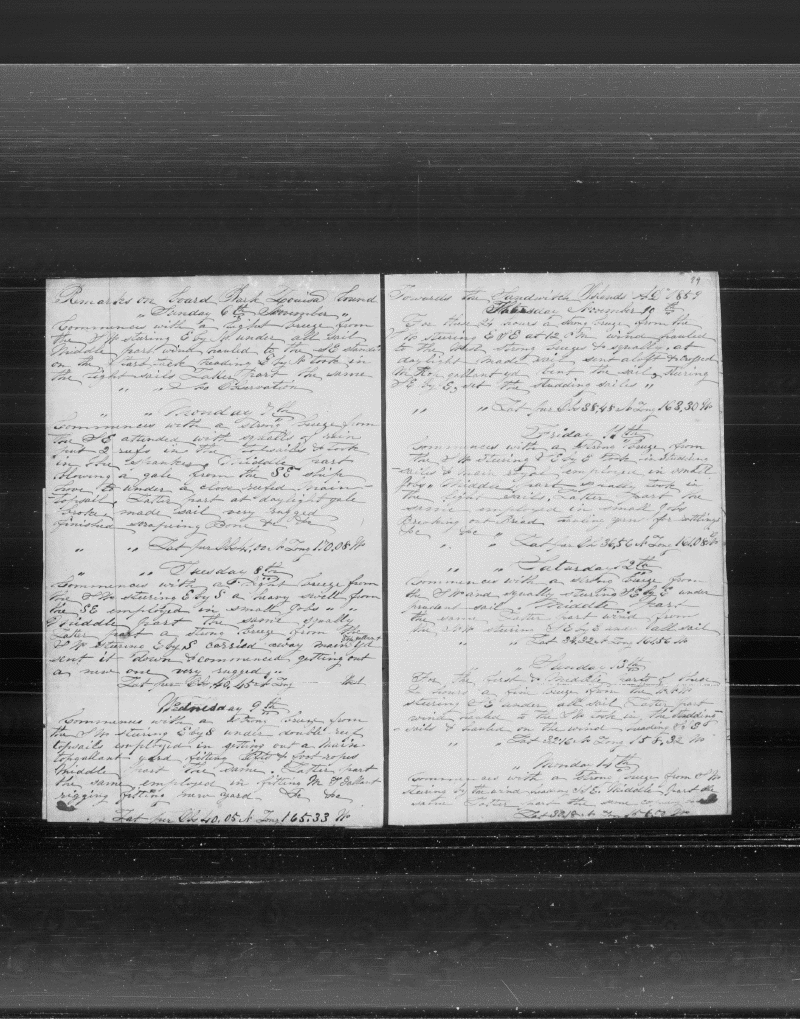 Remarks on board Bark Louisa bound
" Sunday 6th November "
Commences with a light breeze from
the S W stearing E by N under all sail
Middle part wind hauled to the SE
on the heading E by N took in
the light sails Latter part the same
" " & No Observation
" " Monday 7th
Commences with a strong breeze from
the S E attended with squalls of rain
put 2 reefs in the topsails & took
in the spanker Middle part
blowing a gale from the SE ship
hove to under a close reefed main
topsail Latter part at daylight gale
broke made sail very rugged
finished scraping Bone &c &c
" " Lat per Ob N Long 170.08 W
" " Tuesday 8th
Commences with a light breeze from
the S W stearing E by S a heavy swell from
the SE employed in small jobs " "
Middle part the same squally
Latter part a strong breeze from the
S W stearing E by S carried away main yd
sent it down & commenced getting out
a new one very rugged "
Lat per Ob 40.45 N Long
Wednesday 9th
Commences with a strong breeze from
the S W stearing E by S under double reef
topsails employed in getting out a main
topgallant yard fitting lifts & foot ropes
Middle part the same Latter part
the same employed in fitting M T Gallant
rigging fitting new yard &c &c
" Lat per Ob 40.05 N Long 165.33 W
99
Towards the Sandwich Islands AD 1859
Thursday November 10th
For these 24 hours a strong breeze from the
S W stearing at 12 O M wind hauled
to the West strong breeze & squally at
daylight made sail sent aloft & crossed
M T gallant yd bent the sail stearing
S E by E set the studding sails "
" " Lat per Ob 38.48 N Long 163.30 W
Friday 11th
Commences with a strong breeze from
the S W stearing S E by E took in studding
sails & main royal employed in small
jobs Middle part squally took in
the light sails Latter part the
same employed in small jobs
Breaking out Bread
&c &c " Lat per Ob 36.56 N Long W
" " Saturday 12th
Commences with a strong breeze from
the S W and squally stearing S E by E under
prudent sail Middle part
the same Latter part wind from
the stearing S E by E under all sail
" " Lat N Long W
" Sunday 13th
For the first & Middle parts of these
24 hours a fine breeze from the
stearing S E under all sail Latter part
wind hauled to the S W took in the studding
sails & hauled on the wind heading
" " Lat N Long 158.32 W
" Monday 14th
Commences with a strong breeze from S W
stearing by the wind heading S E Middle part the
same Latter part the same
Lat N Long W